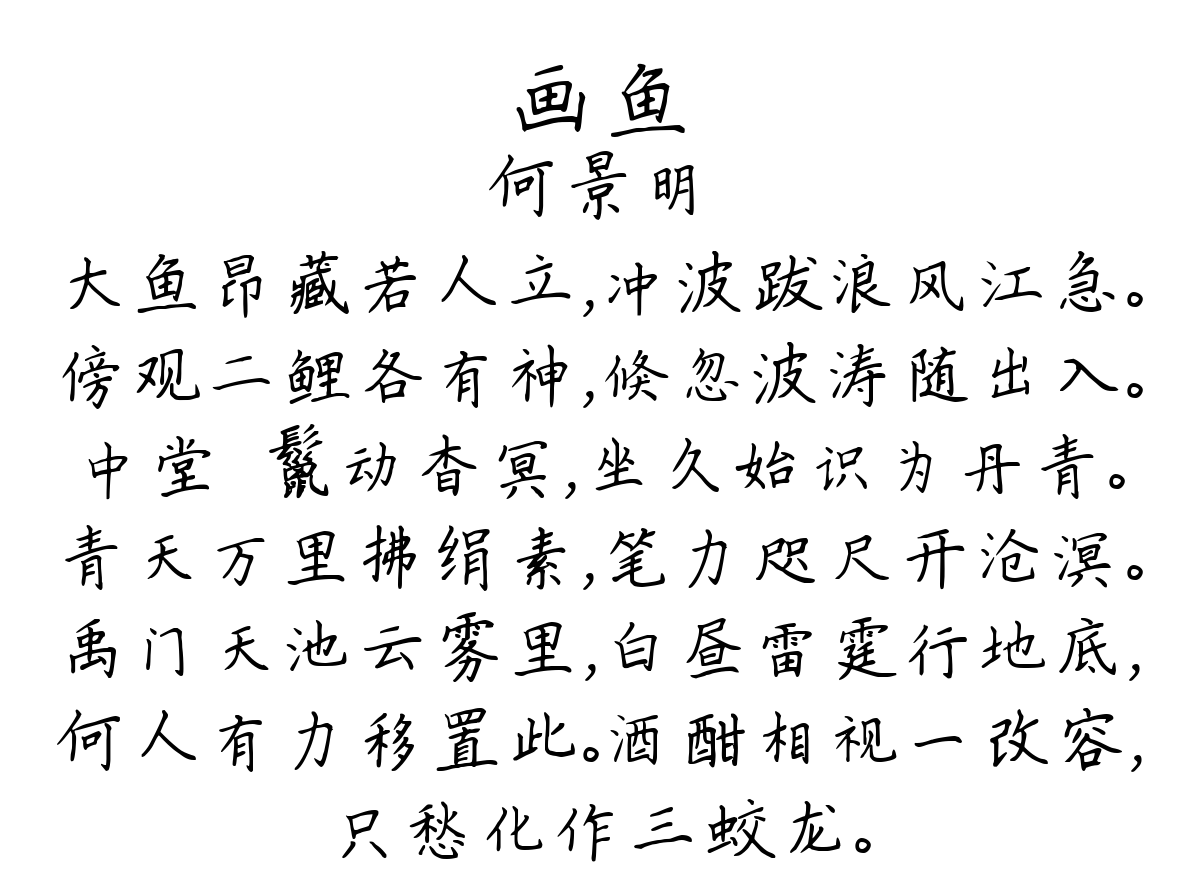 画鱼
何景明
大鱼昂藏若人立,冲波跋浪风江急。
傍观二鲤各有神,倏忽波涛随出入。
中堂 鬣动杳冥,坐久始识为丹青。
青天万里拂绢素,笔力咫尺开沧溟。
禹门天池云雾里,白昼雷霆行地底,
何人有力移置此。酒酣相视一改容,
只愁化作三蛟龙。